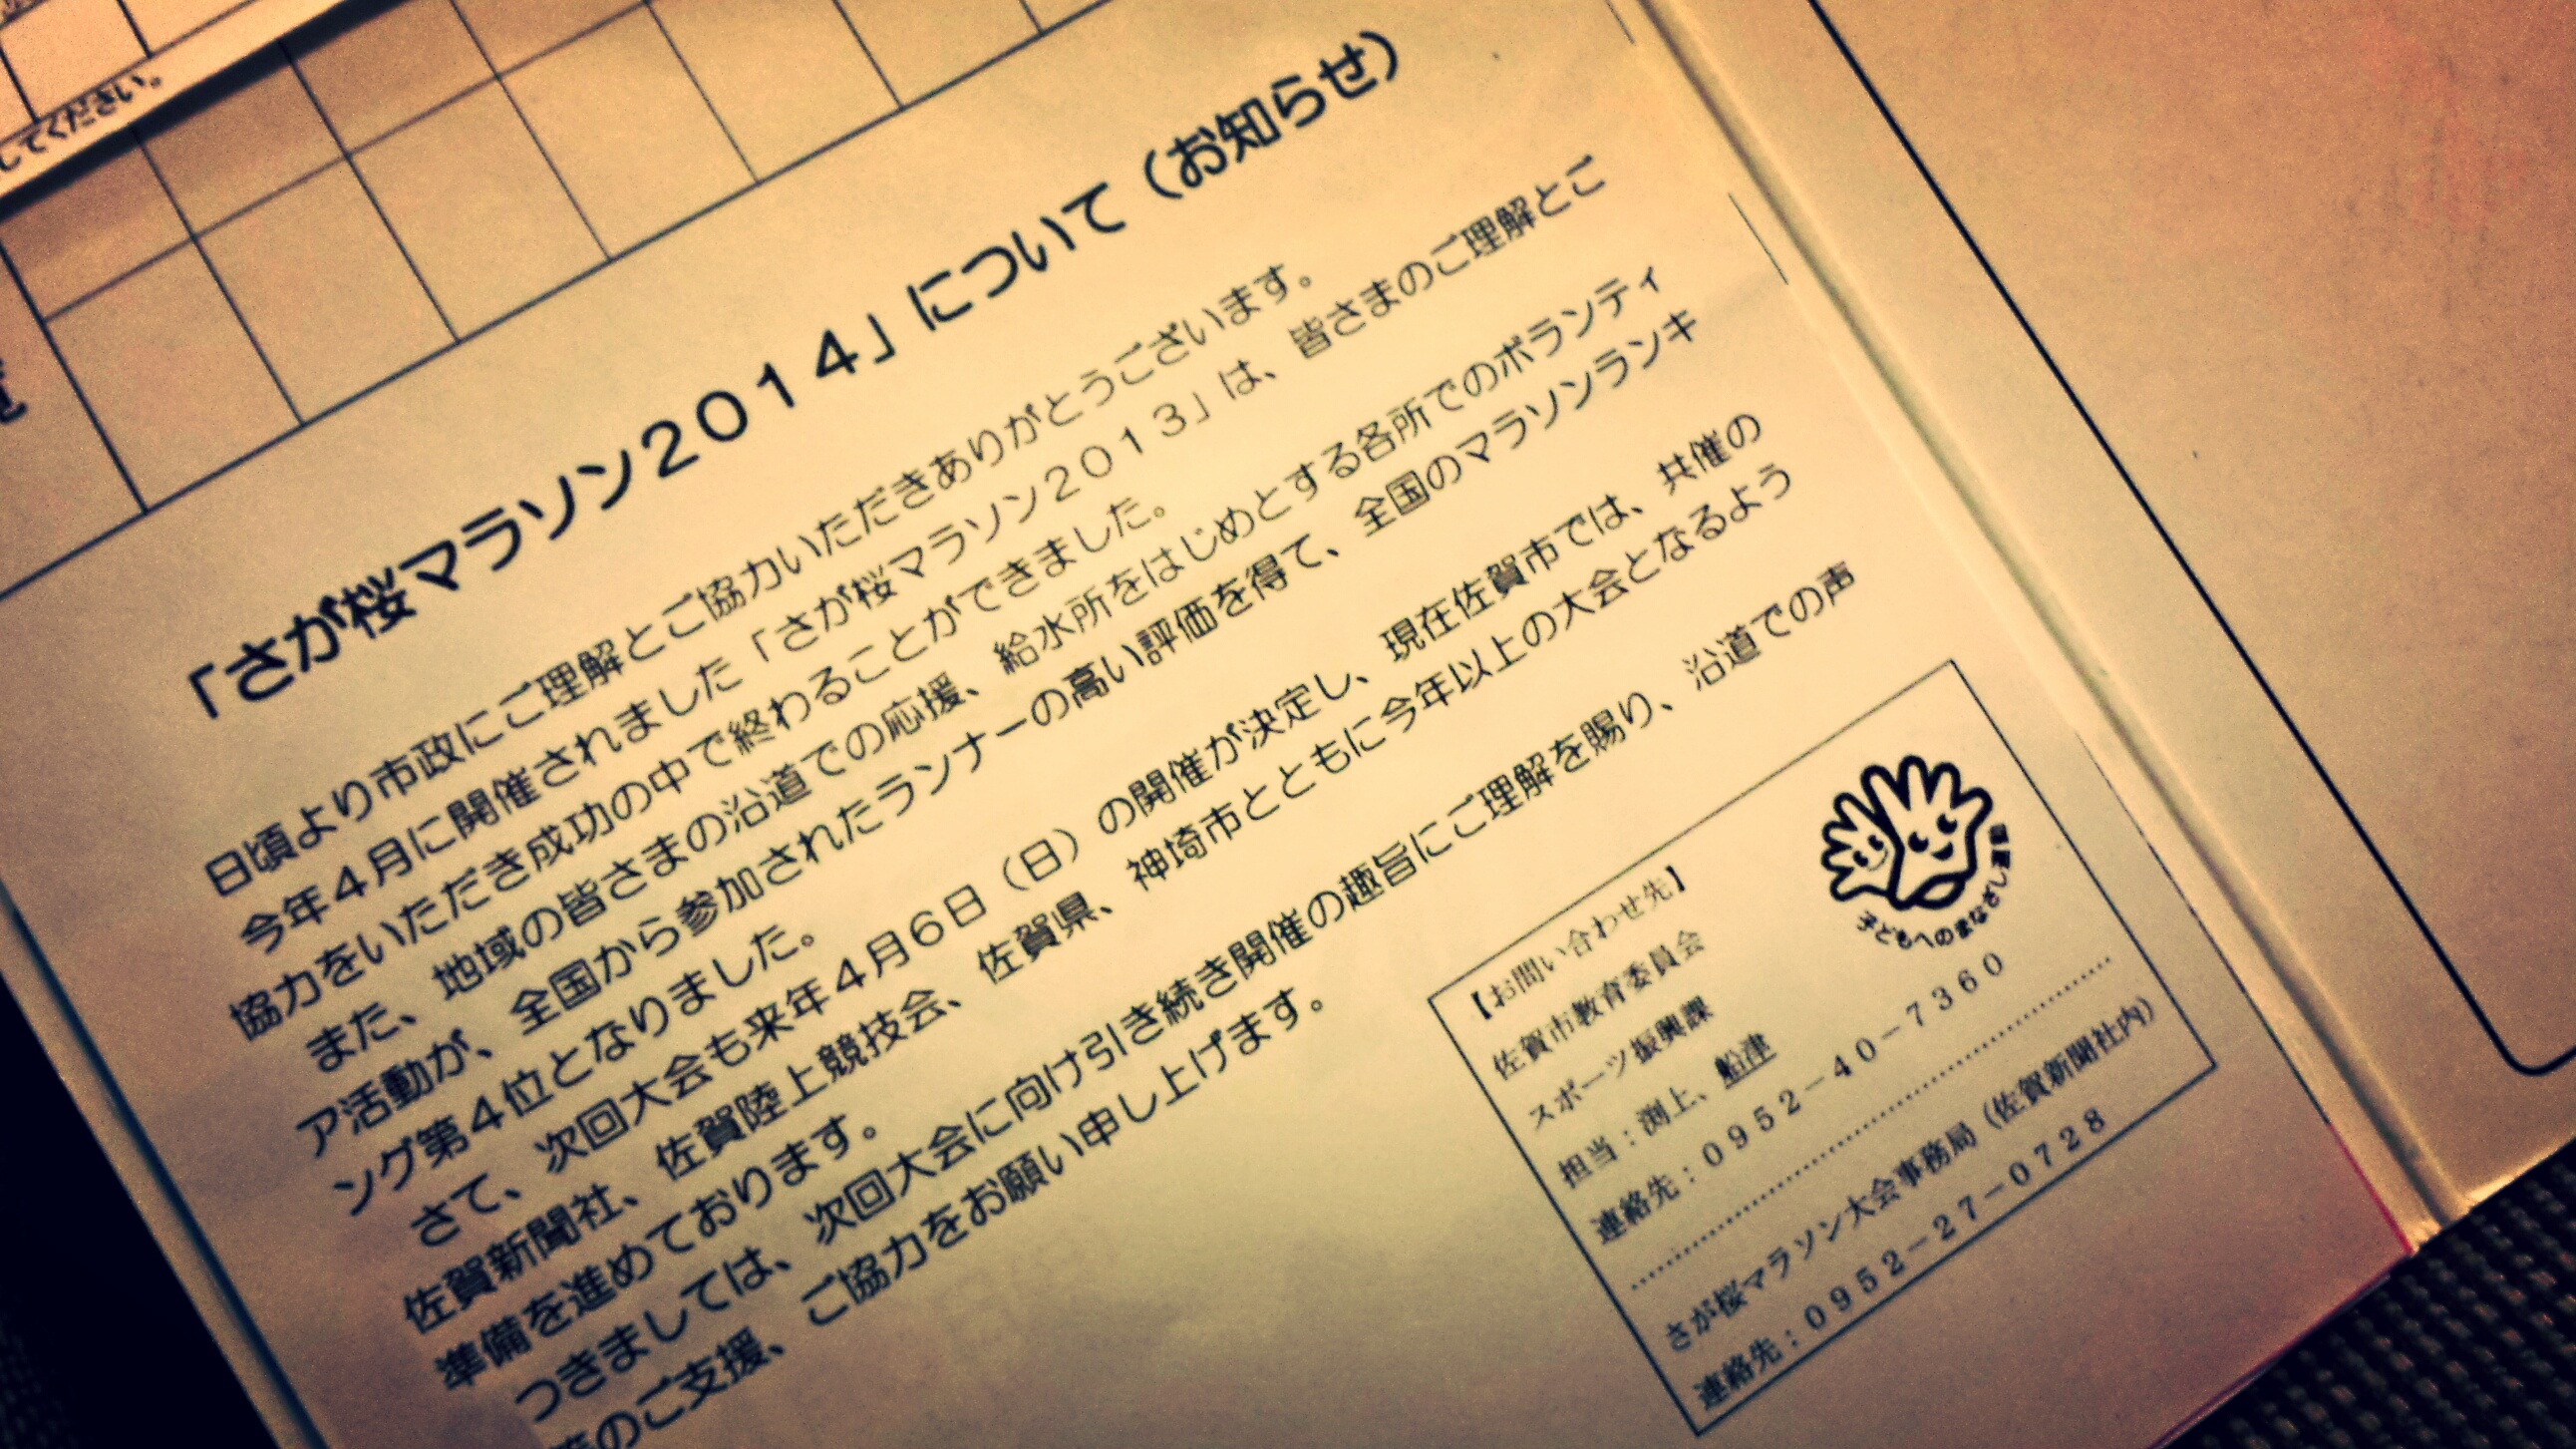 してください。
「さが桜マラソン2014」について（お知らせ）
日頃より市政にご理解とご協力いただきありがとうございます。
今年4月に開催されました「さが桜マラソン2013」は、皆さまのご理解とご
協力をいただき成功の中で終わることができました。
また、地域の皆さまの沿道での応援、給水所をはじめとする各所でのボランティ
ア活動が、全国から参加されたランナーの高い評価を得て、全国のマラソンランキ
ング第4位となりました。
さて、次回大会も来年4月6日（日）の開催が決定し、現在佐賀市では、共催の
佐賀新聞社、佐賀陸上競技会、佐賀県、神埼市とともに今年以上の大会となるよう
準備を進めております。
つきましては、次回大会に向け引き続き開催の趣旨にご理解を賜り、沿道での声
援のご支援、ご協力をお願い申し上げます。
子どもへのまなざし運動
【お問い合わせ先】
佐賀市教育委員会
スポーツ振興課
担当：渕上、船津
連絡先：0952－40－7360
さが桜マラソン大会事務局（佐賀新聞社内）
連絡先：0952－27－0728